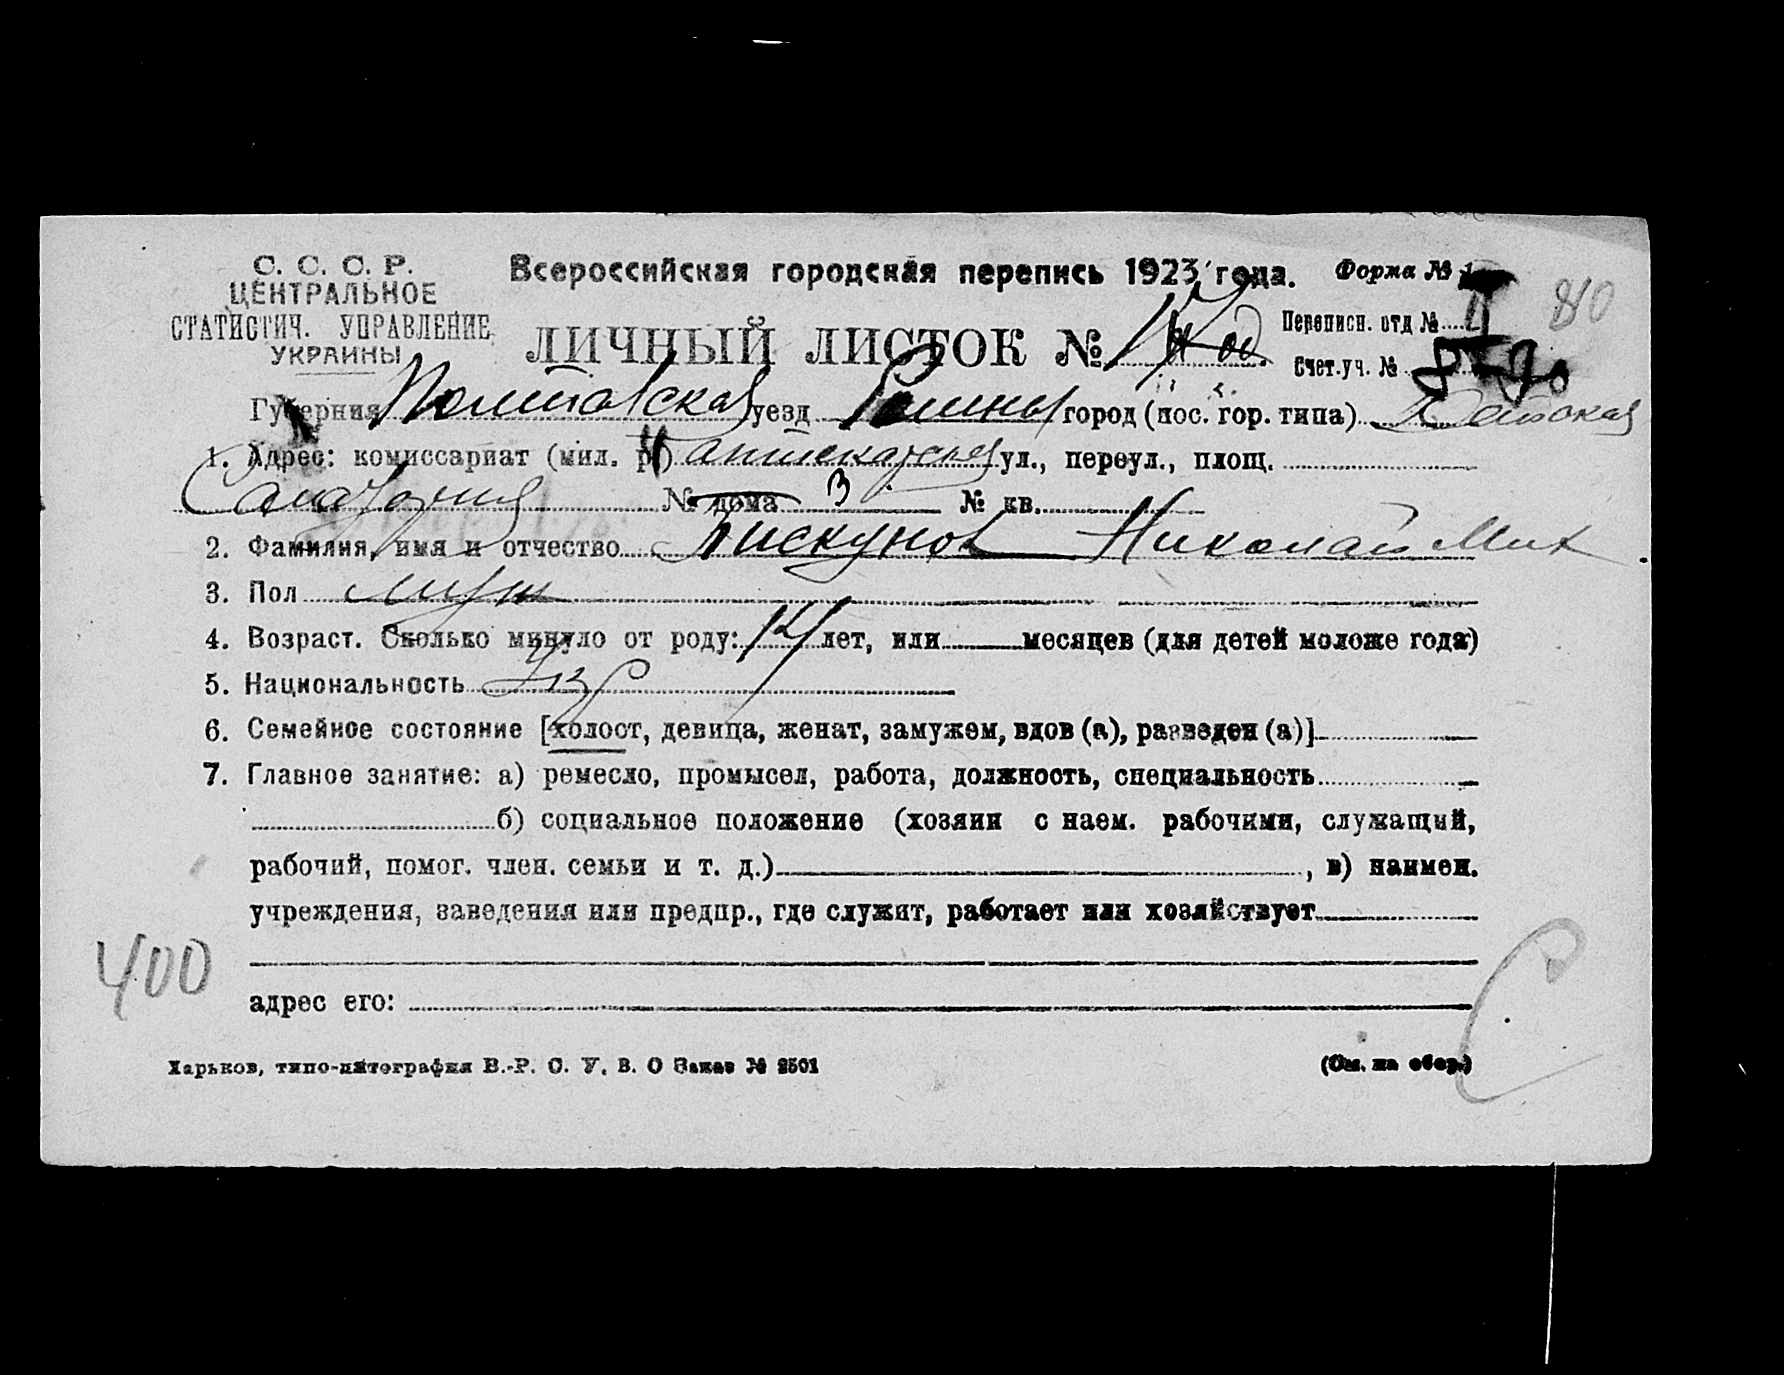 С. С. С. Р.
ЦЕНТРАЛЬНОЕ
СТАТИСТИЧ. УПРАВЛЕНИЕ
УКРАИНЫ
Всероссийская городская перепись 1923 года.
Форма № 1
80
ЛИЧНЫЙ ЛИСТОК №
Переписн. отд №
Счет.уч. №
Губерния Полтавская уезд Ромны город (пос. гор. типа) Детская
1. Адрес: комиссариат (мил. р.) аптекарская ул., переул., площ.
Санатория № дома 3 № кв.
2. Фамилия, имя и отчество Пискунов Николай Мих
3. Пол муж
4. Возраст. Сколько минуло от роду: 14 лет, или месяцев (для детей моложе года)
5. Национальность Укр
6. Семейное состояние [холост, девица, женат, замужем, вдов (а), разведен (а)]
7. Главное занятие: а) ремесло, промысел, работа, должность, специальность
б) социальное положение (хозяин с наем. рабочими, служащий,
рабочий, помог. член. семьи и т. д.) , в) наимен.
учреждения, заведения или предпр., где служит, работает или хозяйствует
400
адрес его:
С
Харьков, типо-литография В.-Р. С. У. В. О Заказ № 2501
(См. на обор.)